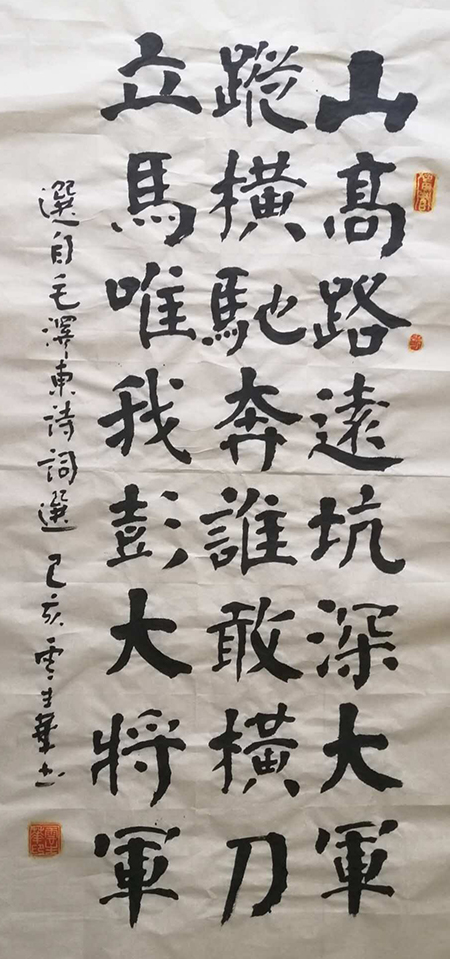 山髙路遠坑深大軍
蹤橫馳奔誰敢橫刀
立馬唯我彭大将軍
選自毛澤東詩詞選 己亥雲生